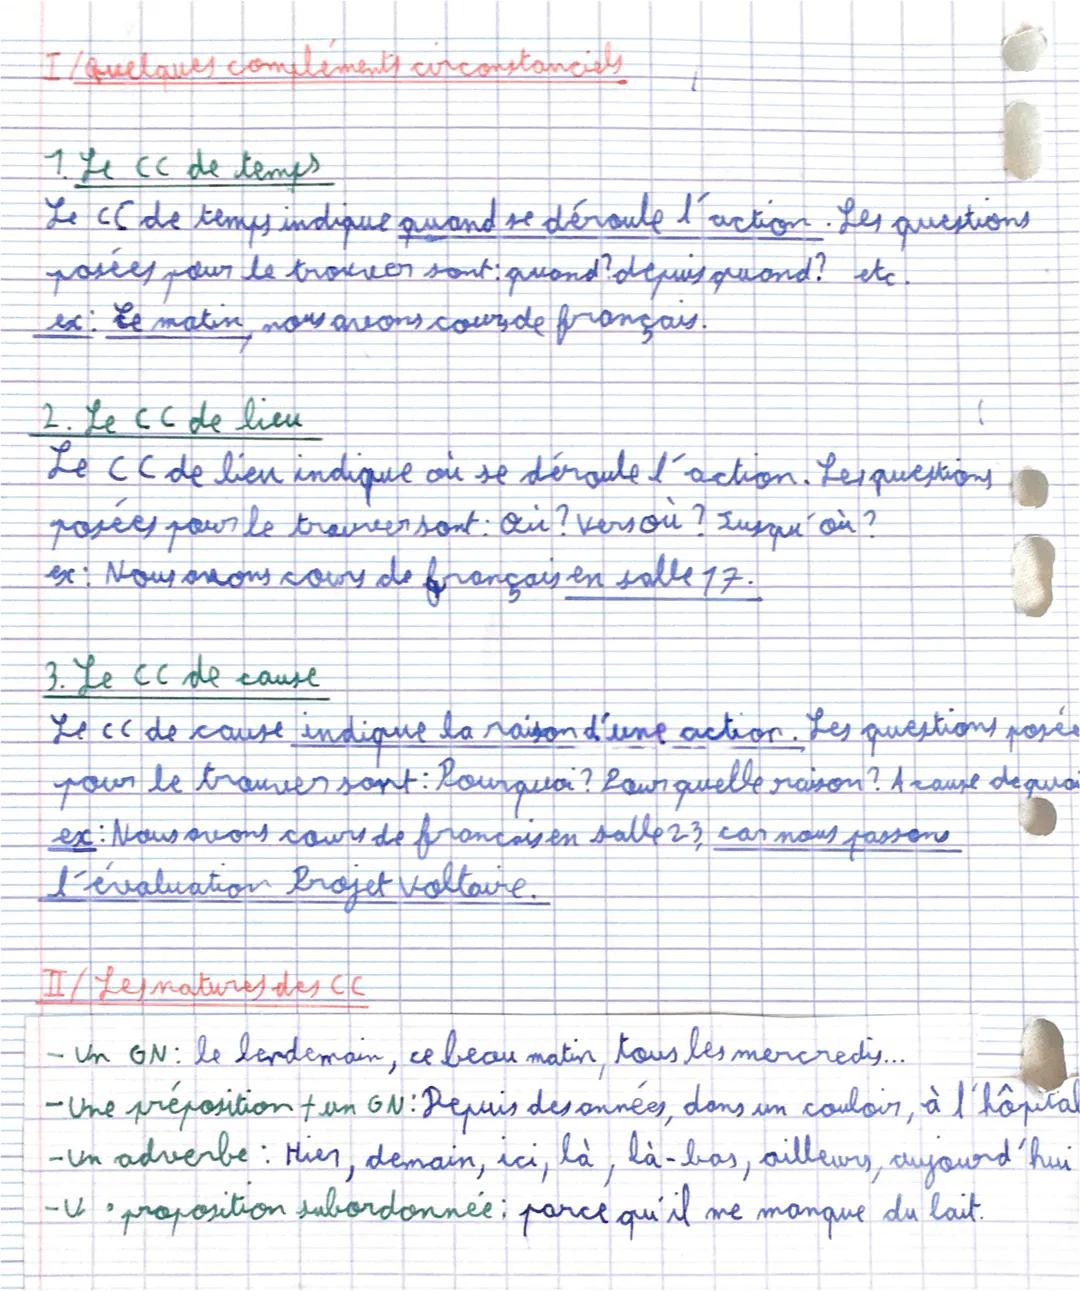 I/Quelques compléments circonstanciels
1. Le CC de temps
Le CC de temps indique quand se déroule l'action. Les questions
posées pour le trouver sont: quand? depuis quand? etc.
ex: Le matin, nous avons cours de français.
2. Le CC de lieu
Le CC de lieu indique où se déroule l'action. Les questions
posées pour le trouver sont: Où? Vers où? Jusqu'où?
ex: Nous avons cours de français en salle 17.
3. Le CC de cause
Le CC de cause indique la raison d'une action. Les questions posée
pour le trouver sont: Pourquoi? Pour quelle raison? A cause de quoi
ex: Nous avons cours de francais en salle 23, car nous passons
l'évaluation Projet Voltaire.
II/ Les natures des CC
- Un GN: le lendemain, ce beau matin, tous les mercredis...
- Une préposition + un GN: Depuis des années, dans un couloir, à l'hôpital
- Un adverbe: Hier, demain, ici, là, là-bas, ailleurs, aujourd'hui
- proposition subordonnée: parce qu'il me manque du lait.